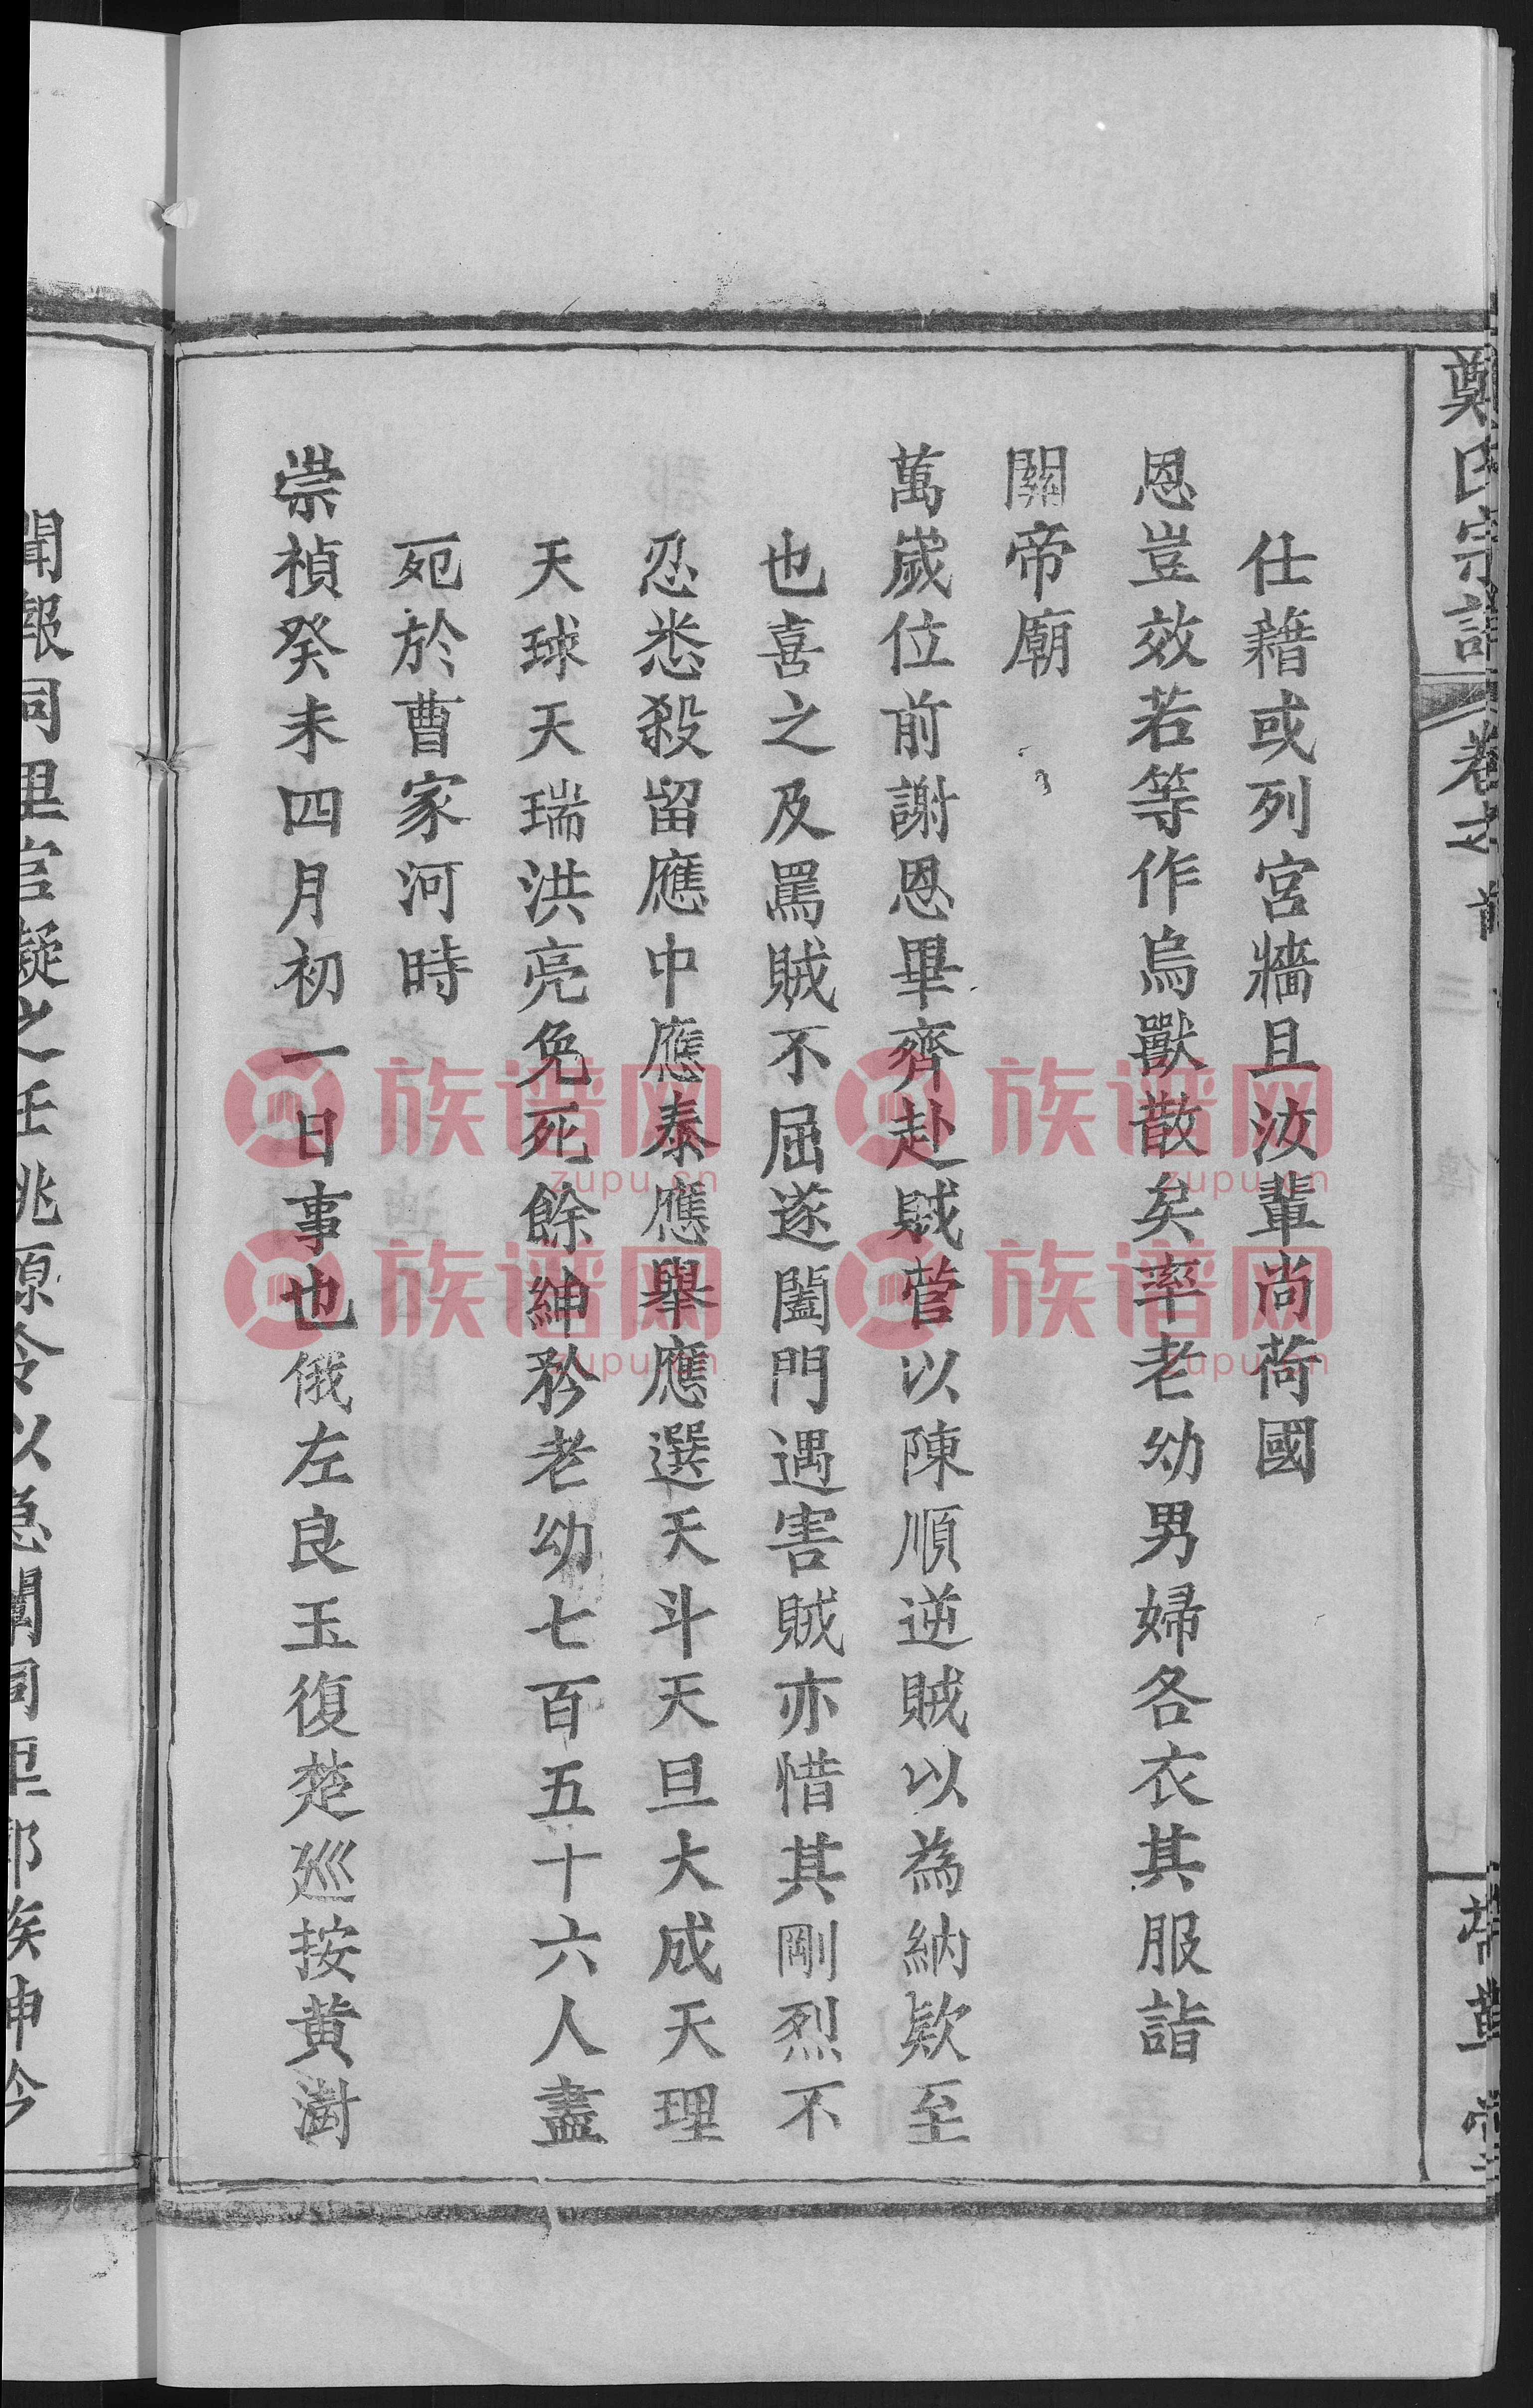 仕藉或列宮牆且汝輩尚荷國
恩豈效若等作鳥獸散矣率老幼男婦各衣其服詣
關帝廟
萬歲位前謝恩畢齊赴賊營以陳順逆賊以為納欵至
也喜之及罵賊不屈遂闔門遇害賊亦惜其剛烈不
忍悉殺留應中應泰應舉應選天斗天旦大成天理
天球天瑞洪亮免死餘紳矜老幼七百五十六人盡
死於曹家河時
崇禎癸未四月初一日事也俄左良玉復楚巡按黄澍
聞報同里官凝之任桃源令以急聞同里郭
族谱网
zupu.cn
族谱网
zupu.cn
族谱网
zupu.cn
族谱网
zupu.cn